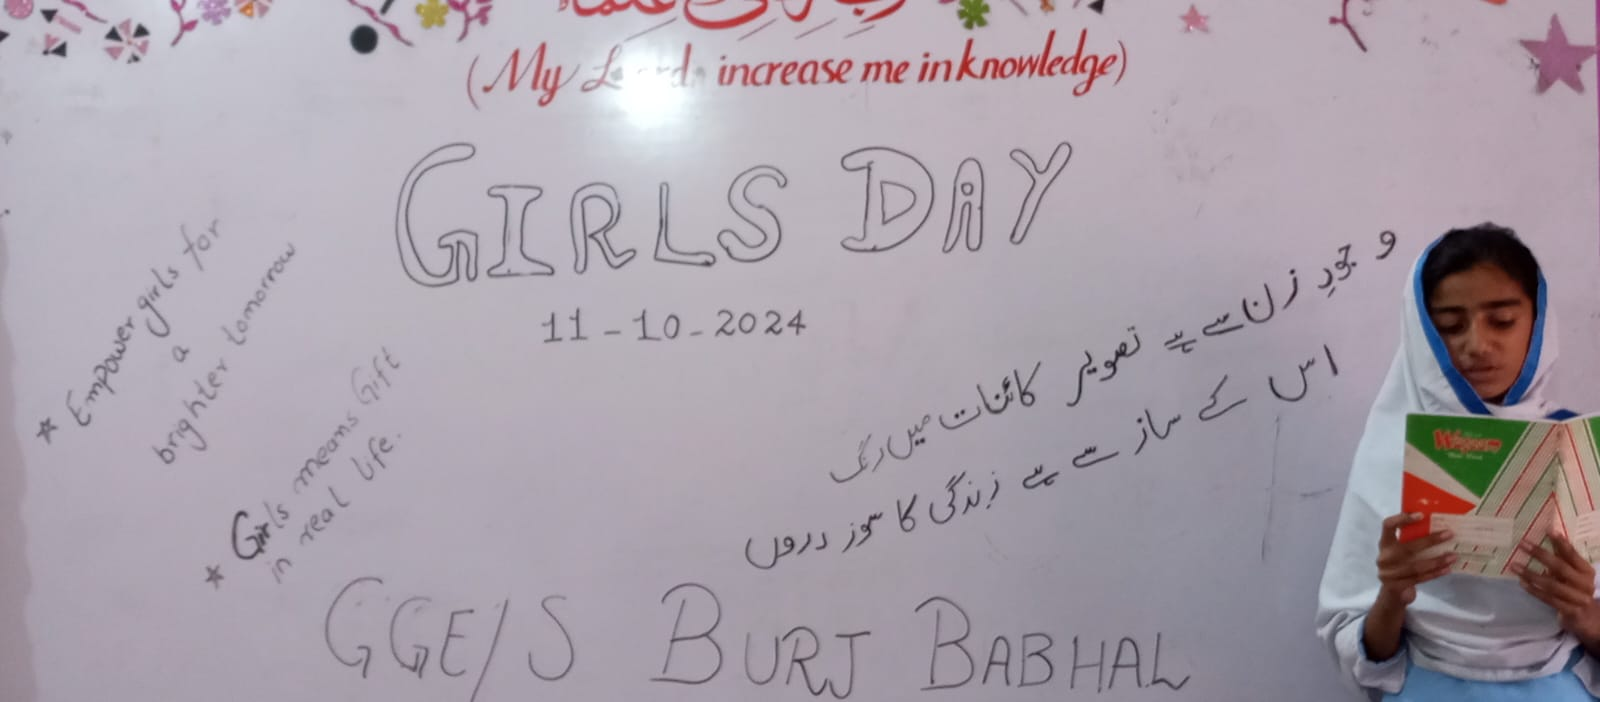 (My Lord increase me in knowledge)
GIRLS DAY
11-10-2024
* Empower girls for
a
brighter tomorrow
* Girls means Gift
in real life.
وجودِ زن سے ہے تصویر کائنات میں رنگ
اس کے ساز سے ہے زندگی کا سوز دروں
GGE/S BURJ BABHAL